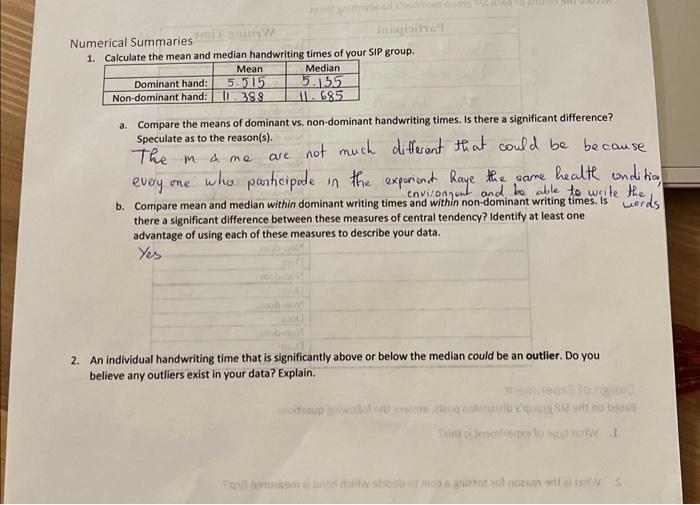 Numerical Summaries
1. Calculate the mean and median handwriting times of your SIP group.
Mean Median
Dominant hand: 5.515 5.135
Non-dominant hand: 11.388 11.685
a. Compare the means of dominant vs. non-dominant handwriting times. Is there a significant difference?
Speculate as to the reason(s).
The m & me are not much different that could be because
every one who participode in the exporiont Raye the same health condition
environment and be able to write the
words
b. Compare mean and median within dominant writing times and within non-dominant writing times. Is
there a significant difference between these measures of central tendency? Identify at least one
advantage of using each of these measures to describe your data.
Yes
2. An individual handwriting time that is significantly above or below the median could be an outlier. Do you
believe any outliers exist in your data? Explain.